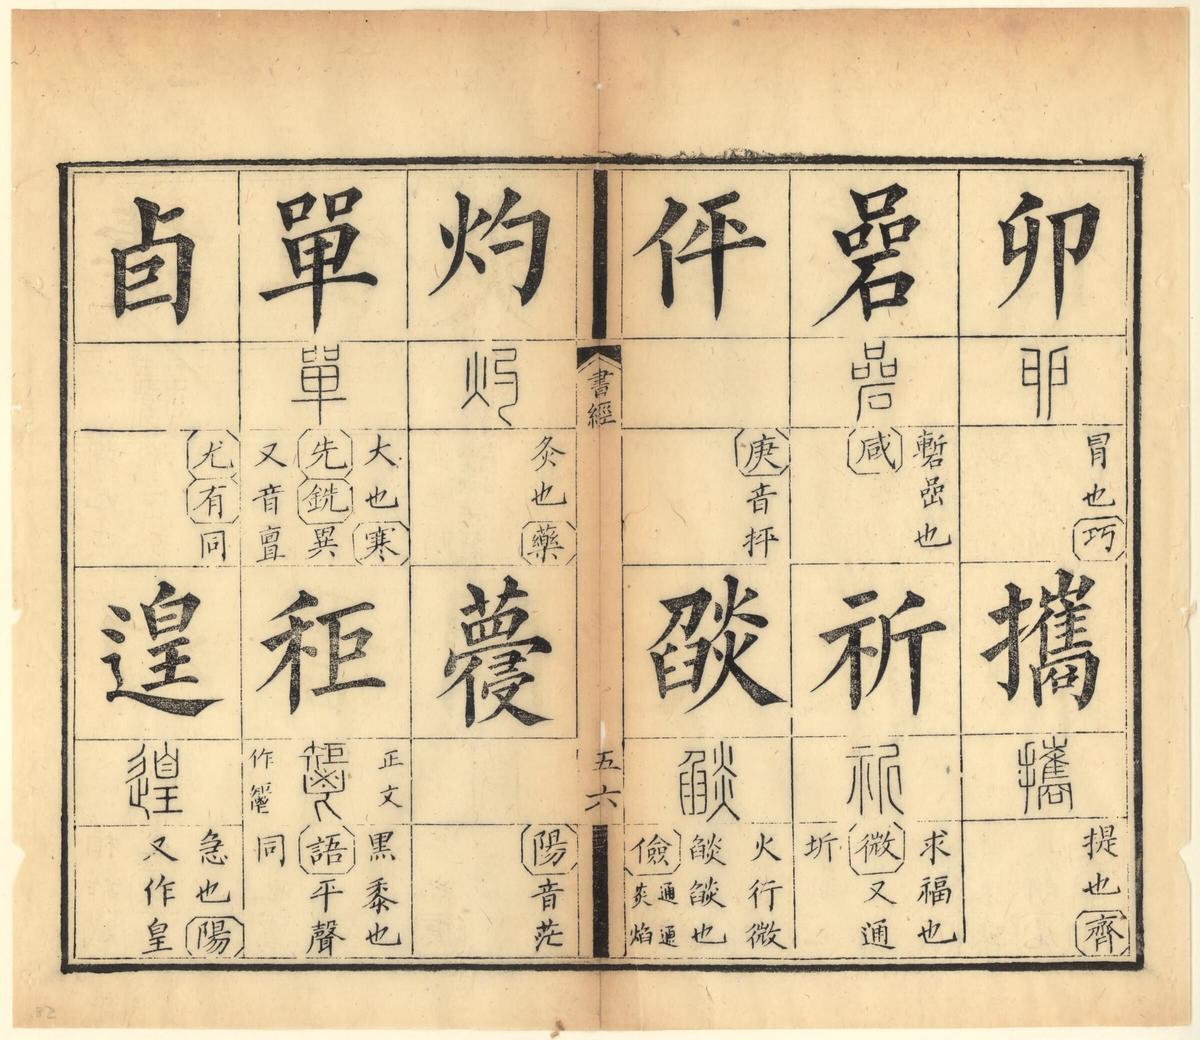 卯
冒也巧
攜
提也齊
碞
暫嵒也
咸
祈
求福也
微又通
圻
伻
庚音抨
燄
火行微
燄燄也
儉
通通
炎焰
書經
五六
灼
灸也藥
陽音茫
單
單
大也寒
先銑異
又音亶
秬
正文
作
黑黍也
語平聲
同
卣
尤有同
遑
急也陽
又作皇